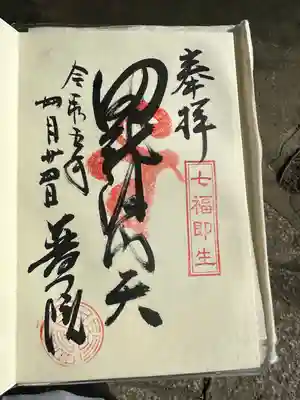 奉拝
七福即生
毘沙門天
令和五年
四月廿四日